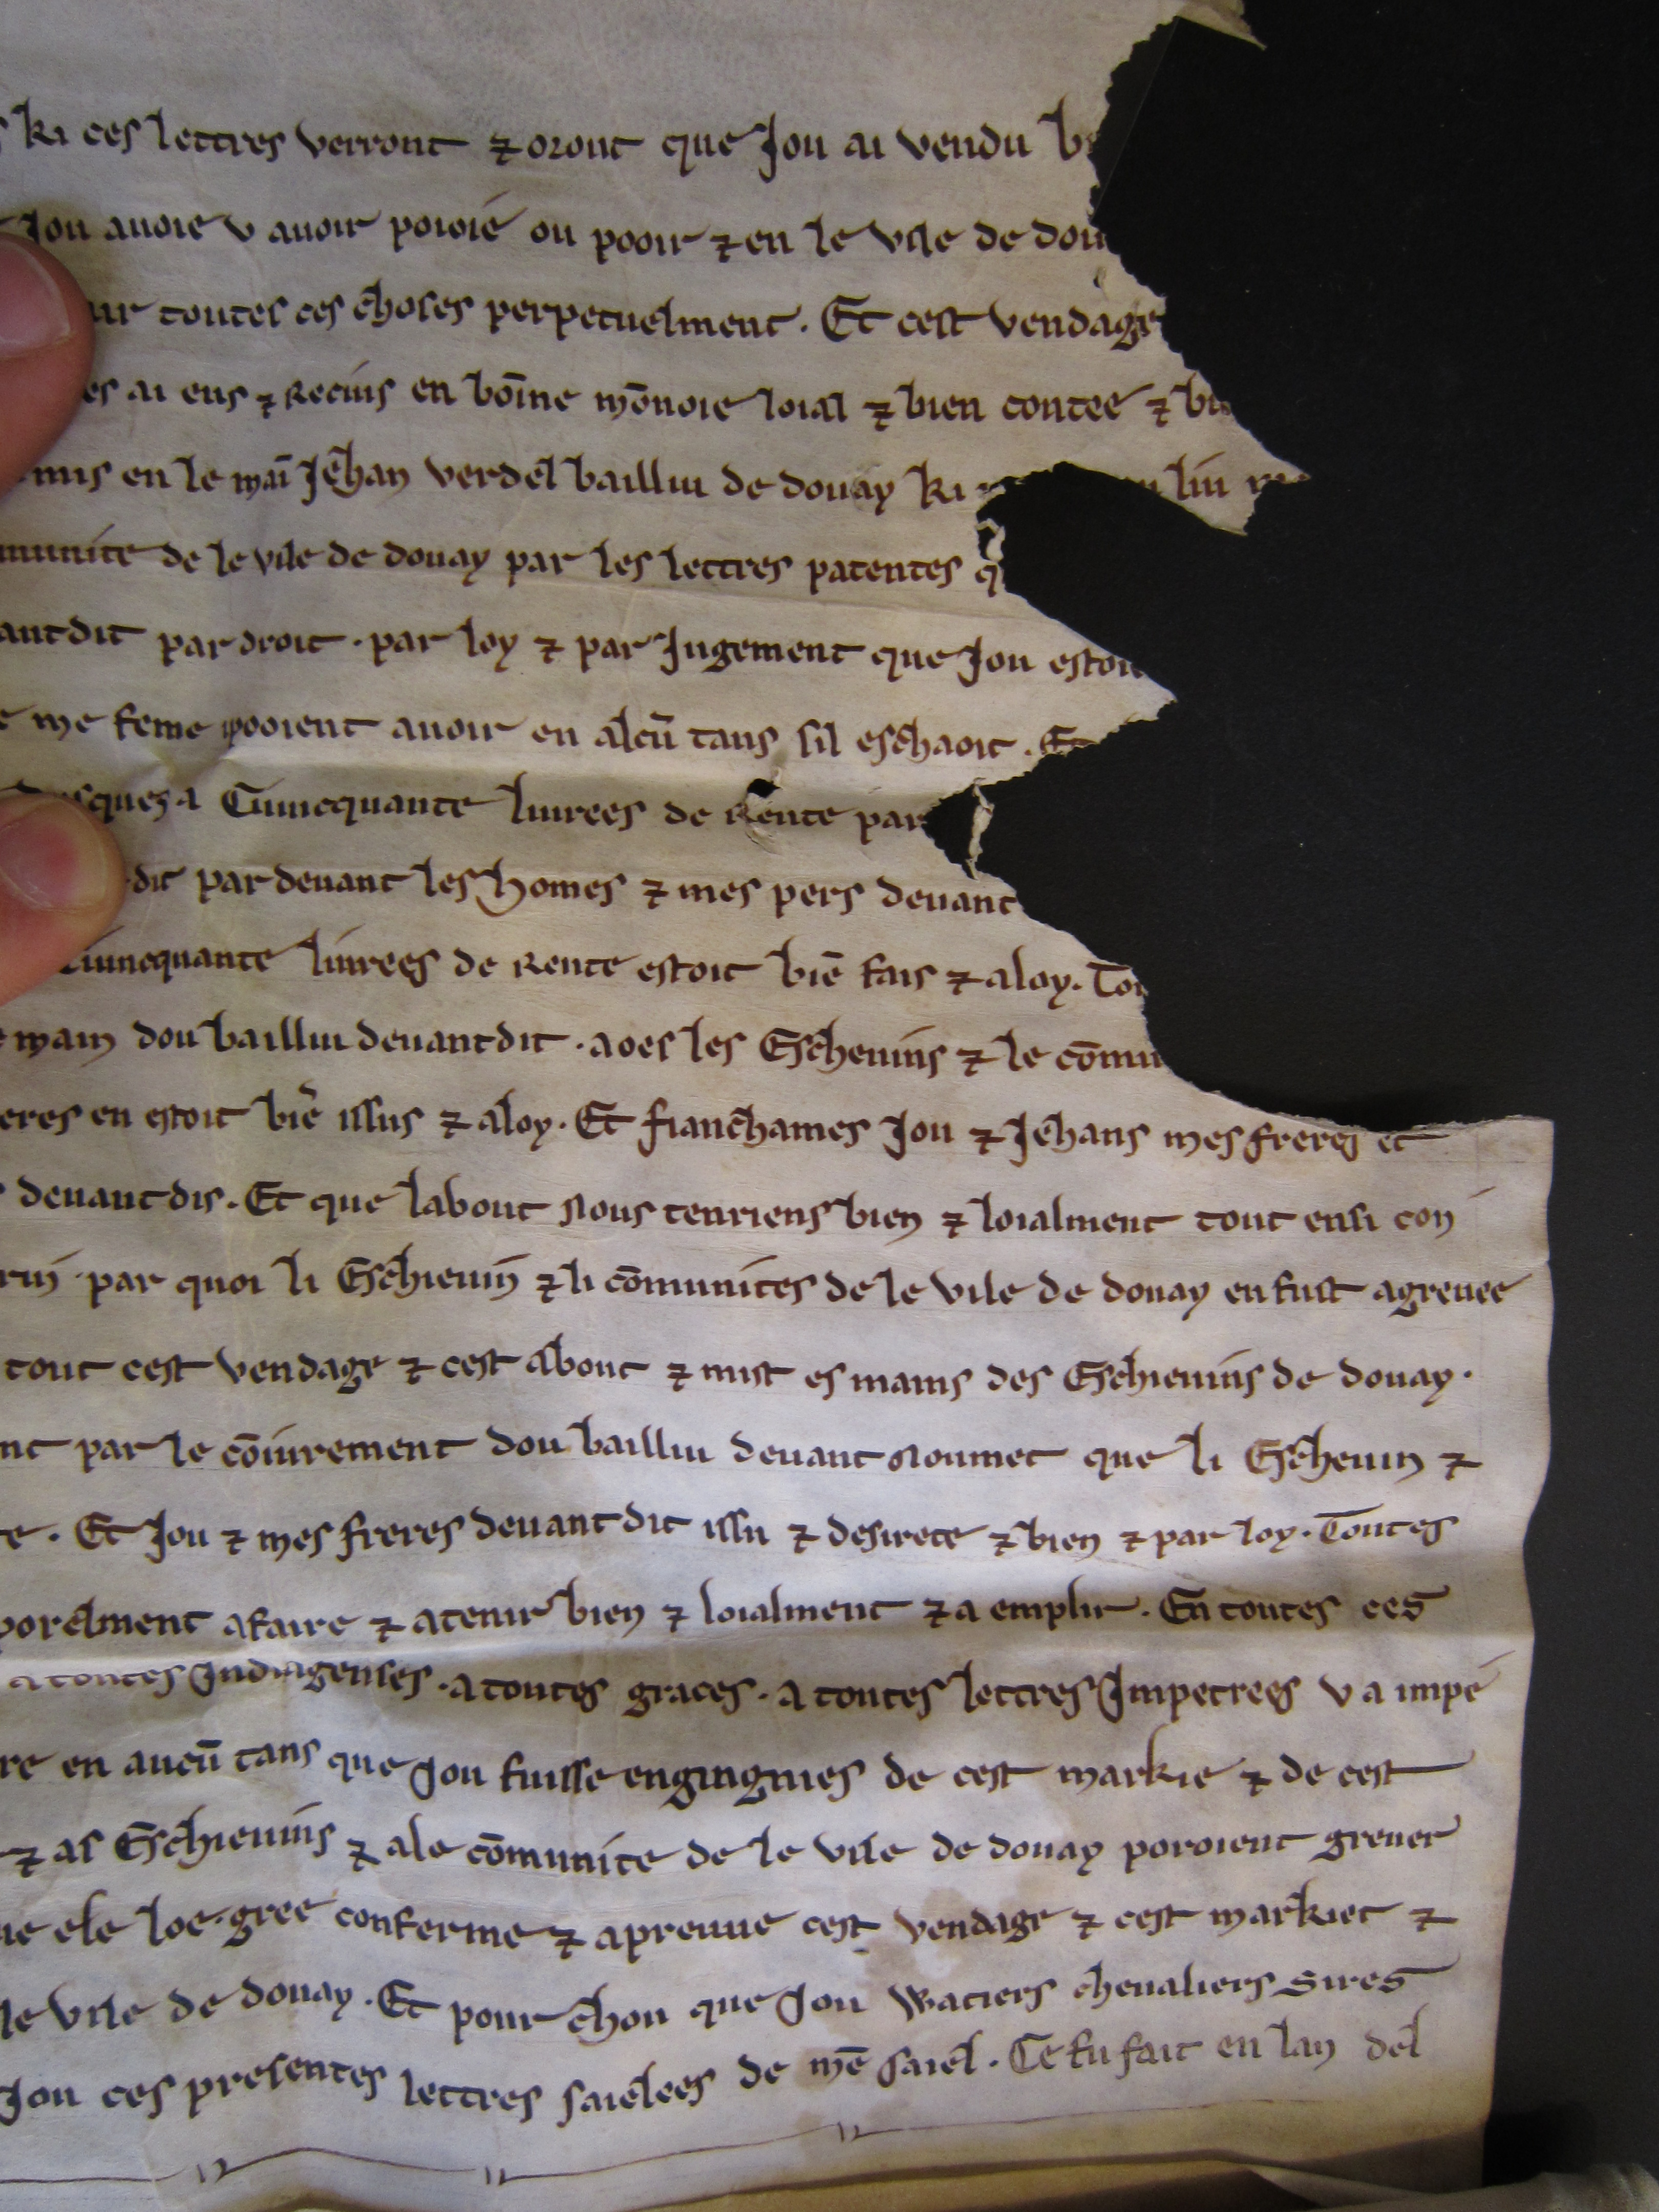 ki ces lettres verront ⁊ oront que Jou ai vendu
Jou auoie v auoir pooie ou pooir ⁊ en le vile de dou
toutes ces choses perpetuelment . Et cest vendage
es ai eus ⁊ Recius en bōine mōnoie loial ⁊ bien contee ⁊
mis en le maī Jehan verdel bailliu de douay ki
munite de le vile de douay par les lettres patentes
antdit par droit . par loy ⁊ par Jugement que Jou estoie
me feme pooient auoir en alcū tans sil eschaoit .
dusquez a Cuincquante liurees de Rente par
dit par deuant les homes ⁊ mes pers deuant
Cuincquante liurees de Rente estoit biē fais ⁊ a loy . Tou
main dou bailliu deuantdit . a oes les Escheuins ⁊ le cōmu
eres en estoit biē issus ⁊ a loy . Et fianchames Jou ⁊ Jehans mes freres et
deuantdis . Et que labout nous tenriens bien ⁊ loialment tout ensi con
par quoi li Eschieuin ⁊ li cōmunites de le vile de douay en fust agreuee
tout cest vendage ⁊ cest about ⁊ mist es mains des Eschieuins de douay .
nt par le cōiurement dou bailliu deuant noumet que li Escheuin ⁊
e . Et Jou ⁊ mes freres deuantdit issu ⁊ desirete ⁊ bien ⁊ par loy . Toutes
porelment a faire ⁊ a tenir bien ⁊ loialment ⁊ a emplir . En toutes ces
a toutes Indulgenses . a toutes graces . a toutes lettres Impetrees v a impe
re en aucū tans que Jou fuisse engingnies de cest markie ⁊ de cest
⁊ as Eschieuins ⁊ a le cōmunite de le vile de douay poroient greuer
ue ele loe . gree conferme ⁊ apreuue cest vendage ⁊ cest markiet ⁊
le vile de douay . Et pour chou que Jou Watiers cheualiers Sires
Jou ces presentes lettres saielees de mē saiel . Ce fu fait en lan del